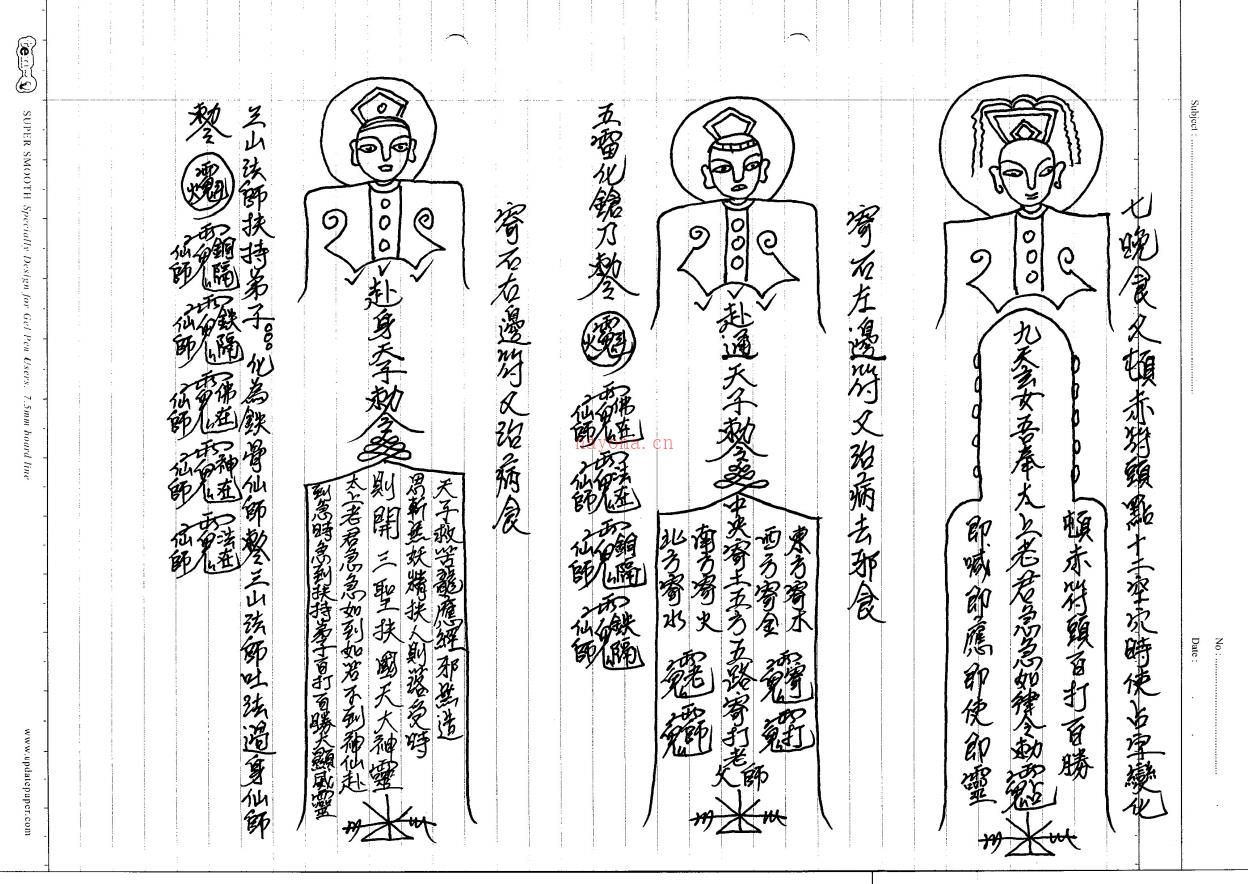 七晚食久頓赤符頭點十二空穴時使占字變化
頓赤符頭百打百勝
九天玄女吾奉太上老君急急如律令勅
即喊即應即使即靈
寄石左邊符又治病去邪食
赴通天子勅令
東方寄木
西方寄金
中央寄土五方五路寄打老師父
南方寄火
北方寄水
五雷化鎗乃勅令
佛在
仙師
法在
仙師
銅隔
仙師
鉄隔
仙師
寄石右邊符又治病食
赴身天子勅令
天子救苦龍應經邪然造
思斬然妖精扶人則落急時
則開三聖扶國天大神靈
太上老君急急如到如若不到神仙赴
到急時急到扶持弟子百打百勝大顯威靈
三山法師扶持弟子。。。化為鉄骨仙師勅令三山法師吐法過身仙師
勅令
銅隔
仙師
鉄隔
仙師
佛在
仙師
神在
仙師
法在
仙師
Subject :
No :
Date :
SUPER SMOOTH Specially Design for Gel Pen Users. 7.5mm board line
www.updatepaper.com
nayona.cn